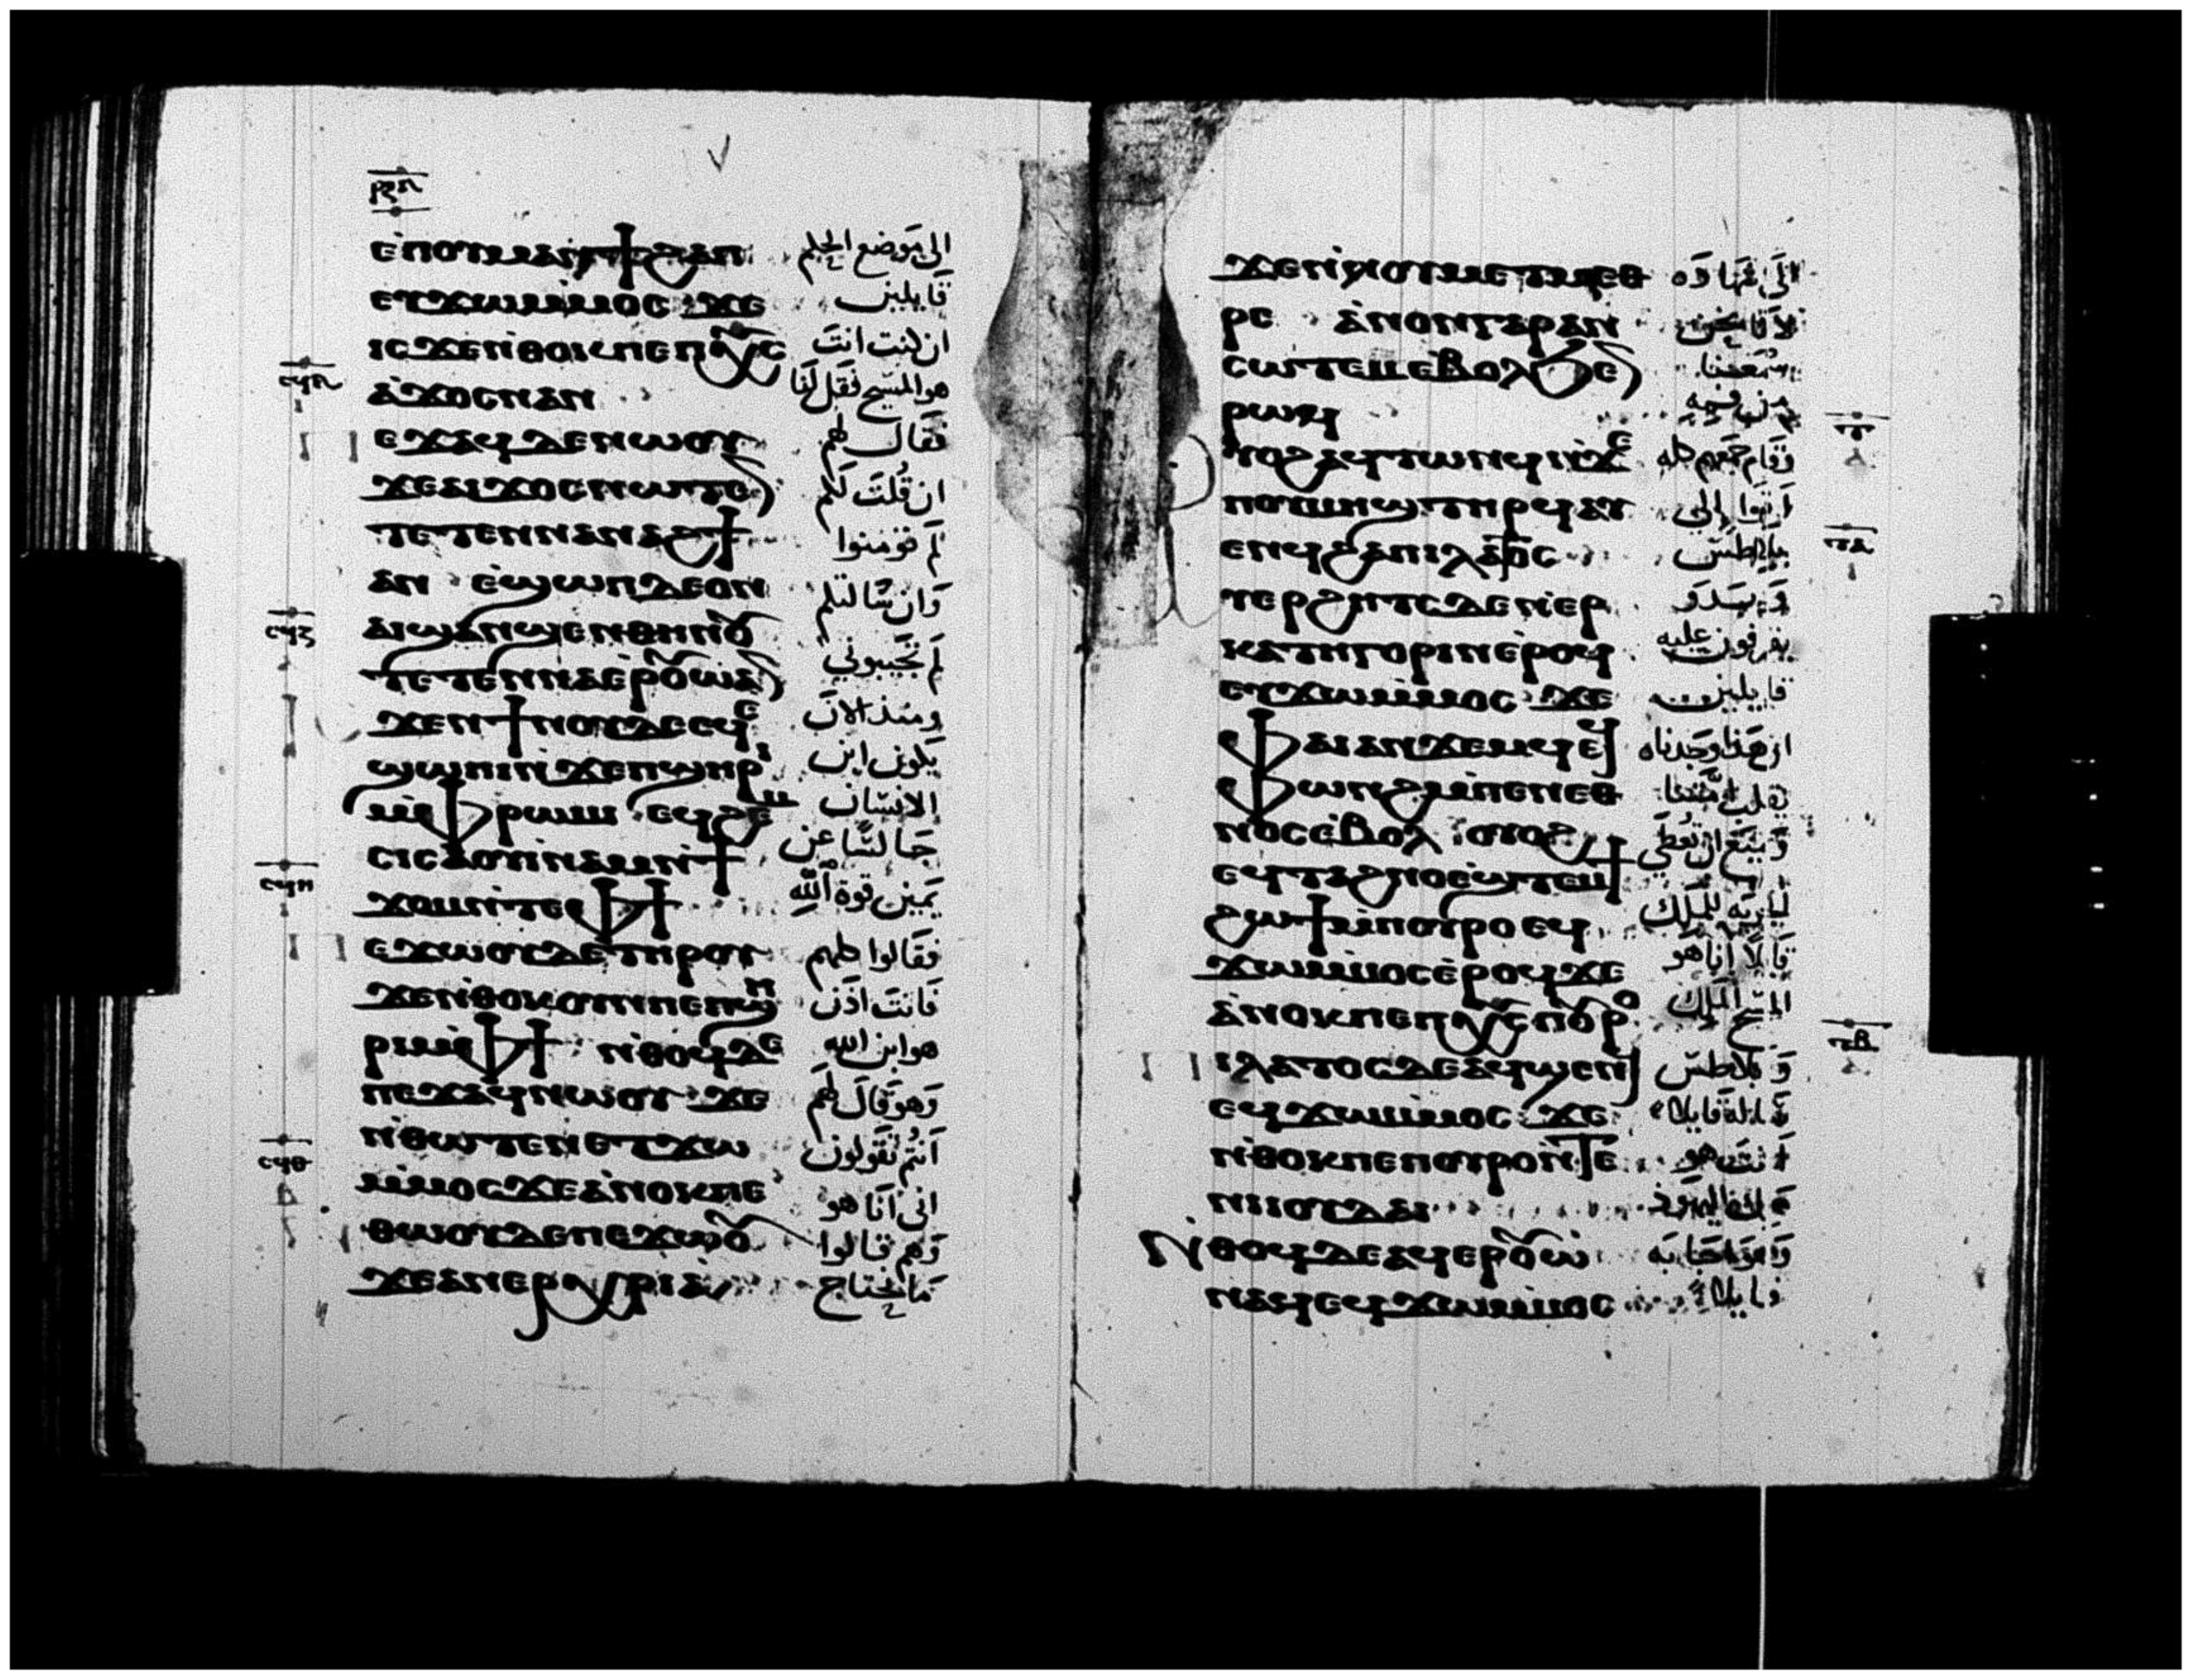 ⲣⲝⲏ
ⲉⲡⲟⲩⲙⲁⲛϯϩⲁⲡ الى موضع الحكم
ⲉⲩϫⲱⲙⲙⲟⲥ ϫⲉ قايلين
ⲓⲥϫⲉⲛⲑⲟⲕⲡⲉⲡⲭⲥ ان كنت انت
ⲁϫⲟⲥⲛⲁⲛ هو المسيح فقل لنا
ⲉϫⲁϥ ⲇⲉⲛⲱⲟⲩ فقال لهم
ϫⲉⲁⲓϫⲟⲥⲛⲱⲧⲉ ان قلت لكم
ⲧⲉⲧⲉⲛⲛⲁⲛⲁϩϯ لم تومنوا
ⲁⲛ ⲉϣⲱⲡⲇⲉⲟⲛ وان سالتكم
ⲁⲓϣⲁⲛϣⲉⲛⲑⲏⲛⲟⲩ
ⲧⲉⲧⲉⲛⲛⲁⲉⲣⲟⲩⲱⲁ لم تجيبوني
ϫⲉⲛϯⲛⲟⲩⲇⲉⲉϥⲉ ومنذ الان
ϣⲱⲡⲓⲛϫⲉⲡϣⲏⲣⲓ يكون ابن
ⲙⲫⲣⲱⲙⲓ ⲉϥϩⲉⲙ الانسان
ⲥⲓⲥⲁⲟⲩⲓⲛⲁⲙⲛϯ جالسا عن
ϫⲟⲙⲛⲧⲉⲫϯ يمين قوة الله
ⲉϫⲱⲟⲩⲇⲉⲧⲏⲣⲟⲩ فقالوا كلهم
ϫⲉⲛⲑⲟⲕⲟⲩⲛⲡⲉⲡϣⲏ فانت اذن
ⲣⲓⲙⲫϯ ⲛⲑⲟϥⲇⲉ هو ابن الله
ⲡⲉϫⲁϥⲛⲱⲟⲩ ϫⲉ وهو قال لهم
ⲛⲑⲱⲧⲉⲛⲉⲧϫⲱ انتم تقولون
ⲙⲙⲟⲥϫⲉⲁⲛⲟⲕⲡⲉ اني انا هو
ⲑⲱⲟⲩⲇⲉⲡⲉϫⲱⲟⲩ وهم قالوا
ϫⲉⲁⲛⲉⲣⲭⲣⲓⲁ ما نحتاج
ϫⲉⲛⲟⲩⲙⲉⲧⲙⲉⲑ الى شهادة
ⲣⲉ ⲁⲛⲟⲛⲅⲁⲣⲁⲛ
ⲥⲱⲧⲉⲙⲉⲃⲟⲗϧⲉ سمعنا
ⲣⲱϥ من فمه
ⲩⲟϩⲁϥⲧⲱⲛϥⲛϫⲉ وقام جمعهم كله
ⲡⲟⲩⲙⲏϣⲧⲏⲣϥⲁⲩ اتوا الى
ⲉⲛϥϩⲁⲡⲓⲗⲁⲧⲟⲥ بيلاطس
ⲧⲉⲣϩⲏⲧⲥⲇⲉⲛⲉⲣ
ⲕⲁⲧⲏⲅⲟⲣⲓⲛⲉⲣⲟϥ يقرفون عليه
ⲉⲩϫⲱⲙⲙⲟⲥ ϫⲉ قايلين
ⲫⲁⲓⲁⲛϫⲉⲙϥⲉϥ ان هذا وجدناه
ⲫⲱⲛϩⲙⲡⲉⲛⲉⲑ يقلب امتنا
ⲛⲟⲥⲉⲃⲟⲗ ⲟⲩⲟϩ ويمنع ان نعطي
ⲉϥⲧⲁϩⲛⲟⲉϣⲧⲉⲙϯ
ϩⲱϯⲙⲡⲟⲩⲣⲟ ⲉϥ للملك
ϫⲱⲙⲙⲟⲥⲉⲣⲟϥϫⲉ قايلا انا هو
ⲁⲛⲟⲕⲡⲉⲡⲭⲥⲡⲟⲩⲣⲟ المسيح الملك
ⲓⲗⲁⲧⲟⲥⲇⲉⲁϥϣⲉⲛϥ وبيلاطس
ⲉϥϫⲱⲙⲙⲟⲥ ϫⲉ ساله قايلا
ⲛⲑⲟⲕⲡⲉⲡⲟⲩⲣⲟⲛⲧⲉ انت هو
ⲛⲓⲓⲟⲩⲇⲁⲓ ملك اليهود
ⲛⲑⲟϥⲇⲉⲁϥⲉⲣⲟⲩⲱ وهو اجابه
ⲛⲁϥⲉϥϫⲱⲙⲙⲟⲥ قايلا